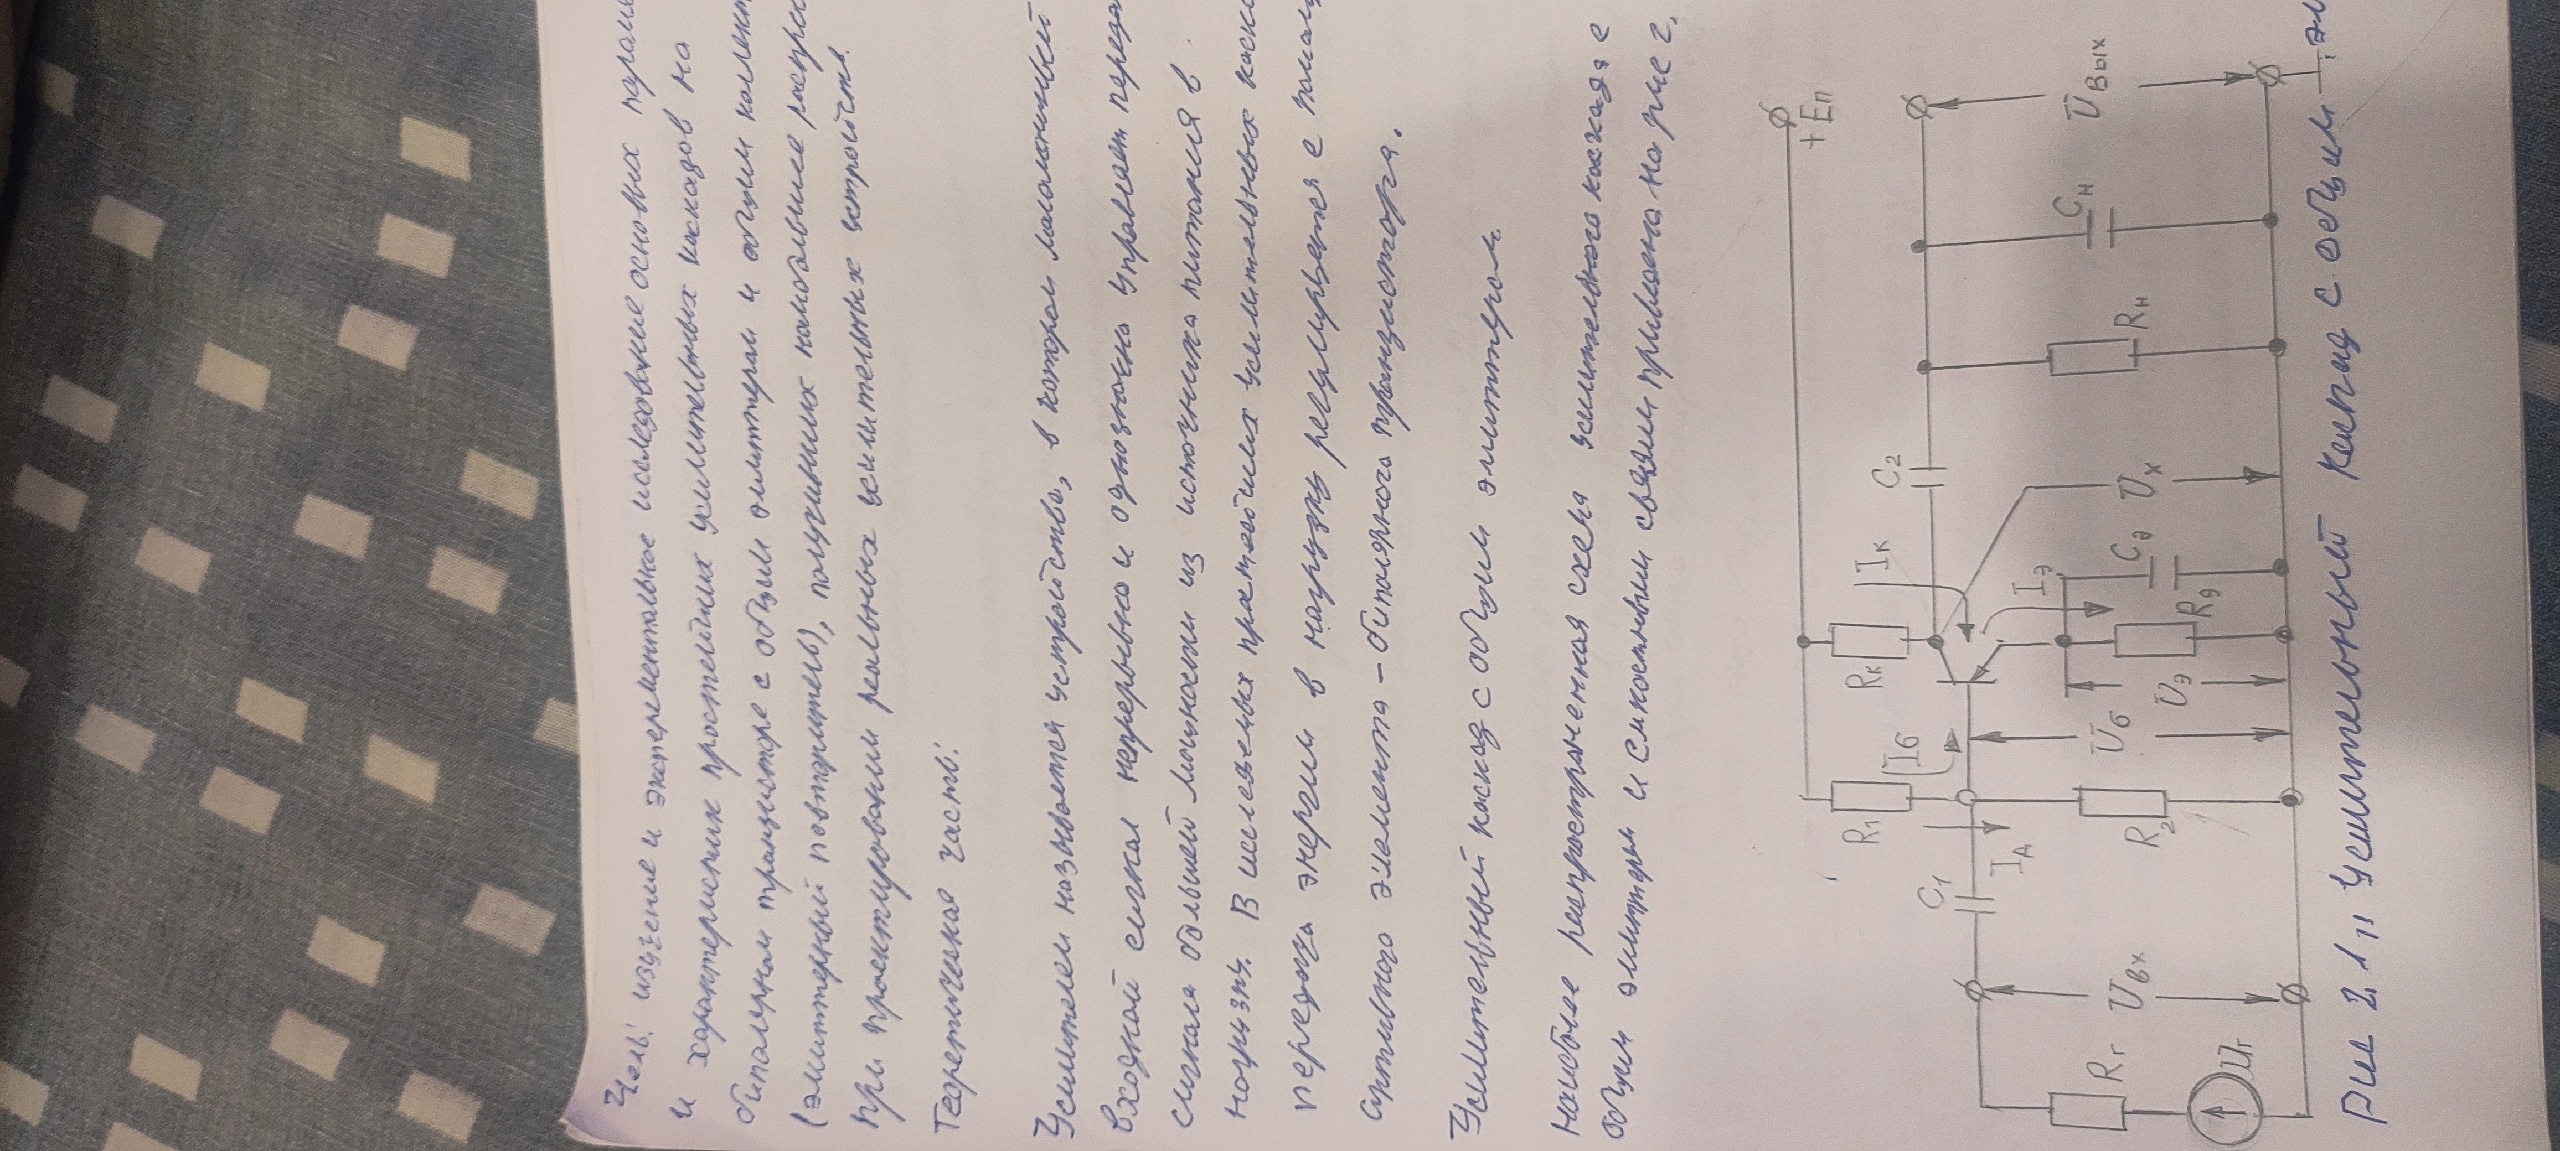 Цель: изучение и экспериментальное исследование основных парам
и характеристик простейших усилительных каскадов на
биполярном транзисторе с общим эмиттером и общим коллект
(эмиттерный повторитель), получивших наибольшее распрос
при проектировании реальных усилительных устройств.
Теоретическая часть:
Усилителем называется устройство, в котором маломощный
входной сигнал непрерывно и однозначно управляет переда
сигнала большей мощности из источника питания в
нагрузку. В исследуемых простейших усилительных каска
передача энергии в нагрузку регулируется с помощ
активного элемента - биполярного транзистора.
Усилительный каскад с общим эмиттером
Наиболее распространенная схема усилительного каскада с
общим эмиттером и емкостными связями приведена на рис 2.
+ Eп
R1 Iб Rк Iк C2
C1 Iд Iэ
Rг Uвх R2 Uб Uэ Rэ Cэ Uк Rн Cн Uвых
Uг
Рис 2.1 „ Усилительный каскад с общим эм